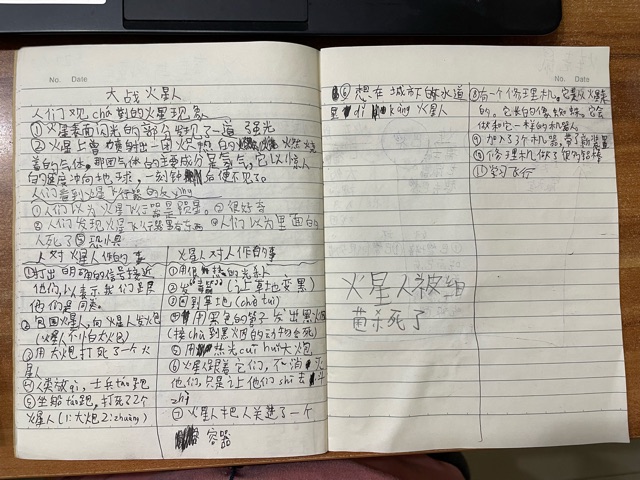 No. Date
大战火星人
人们观chá到的火星现象
①火星表面闪光的部分发现了一道强光
②火星上曾喷射出一团火炽的燃烧
着的气体,那团气体的主要成分是氢气,它以惊人
的速度冲向地球,一刻钟后便不见了。
人们看到火星飞行器的反yìng
①人们以为火星飞行器是陨星。②很好奇
③人们发现火星飞行器里有东西 ④人们以为里面的
人死了⑤恐惧
人对火星人作的事
①打出明确的信号接近
他们,以表示我们是
他们是同类。
②包围火星人,向火星人发火包
(火星人不小白大火包)
③用大炮打死了一个火
星人
④人类放qì,士兵táo跑
⑤坐船táo跑,打死了2个
火星人(1:大炮2:zhuàng)
火星人对人作的事
①用 热的光
②发 (让草地变黑)
③回到草地(chǎ tuǐ)
④用黑色的管子发出黑烟
(接chá到黑烟的动物会死)
⑤用热光cuī huǐ大炮
⑥火星跟着它们,不消灭
他们,只是让他们shī去
zhì
⑦火星人把人关进了一个
容器
No. Date
⑥想在城市下的水道
里dǐ kàng火星人
火星人被细
菌杀死了
⑧有一个修理机。它是从火星来
的。它长的像蜘蛛。它会
做和它一样的机器人。
⑨加入3个机器,带了新装置
⑩修理机做了很多铝棒
⑪学习飞行